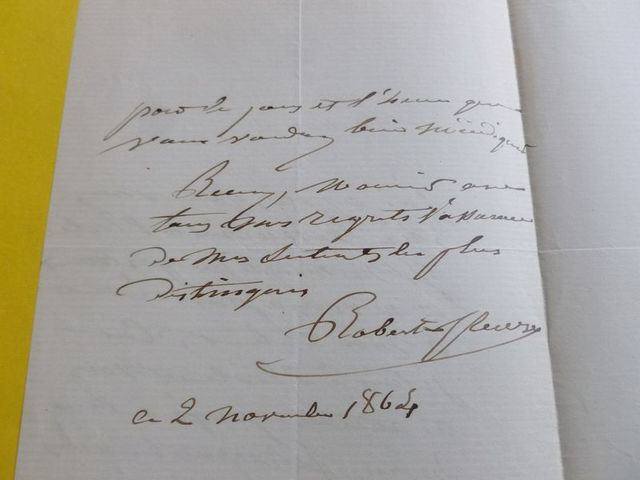 pour le jour et l'heure que
vous voudrez bien m'indiquer
Recevez, Monsieur avec
tous mes regrets l'assurance
de mes sentiments les plus
distingués
Robert Fleury
ce 2 novembre 1864